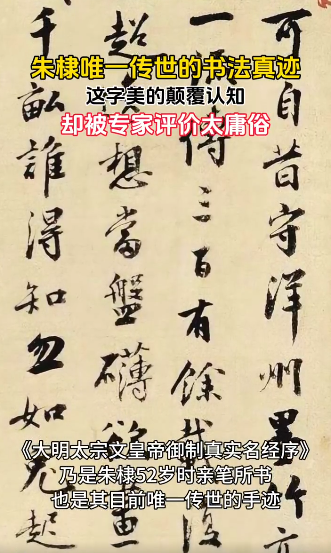 朱棣唯一传世的书法真迹
这字美的颠覆认知
却被专家评价太庸俗
可自昔守洋州墨竹
一派傳三百有餘載
超想當盤礴
千畝誰得知忽如兔起
《大明太宗文皇帝御制真实名经序》
乃是朱棣52岁时亲笔所书
也是其目前唯一传世的手迹